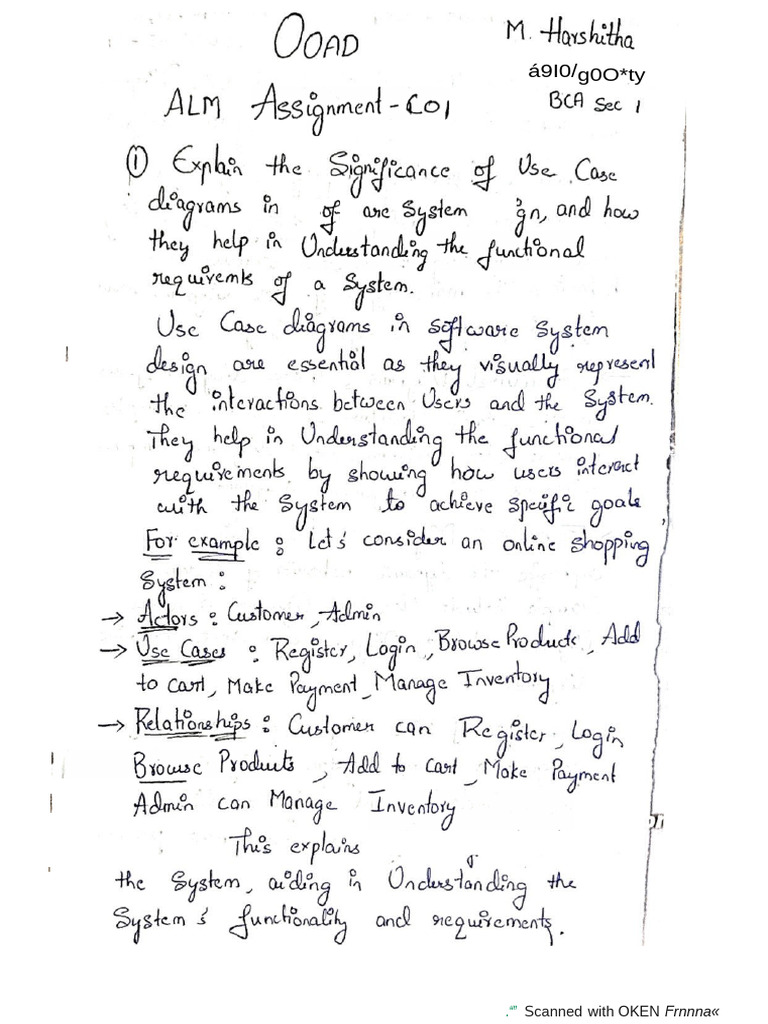 OOAD
M. Harshitha
á9I0/g0O*ty
BCA Sec 1
ALM Assignment - CO1
① Explain the Significance of Use Case
diagrams in of are System gn, and how
they help in Understanding the functional
requirements of a System.
Use Case diagrams in software System
design are essential as they visually represent
the interactions between Users and the System.
They help in Understanding the functional
requirements by showing how users interact
with the System to achieve specific goals
For example : Let's consider an online shopping
System :
→ Actors : Customer, Admin
→ Use Cases : Register, Login, Browse Products, Add
to cart, Make Payment, Manage Inventory
→ Relationships : Customer can Register, Login
Browse Products, Add to cart, Make Payment
Admin can Manage Inventory
This explains
the System, aiding in Understanding the
System's functionality and requirements.
Scanned with OKEN Frnnna«